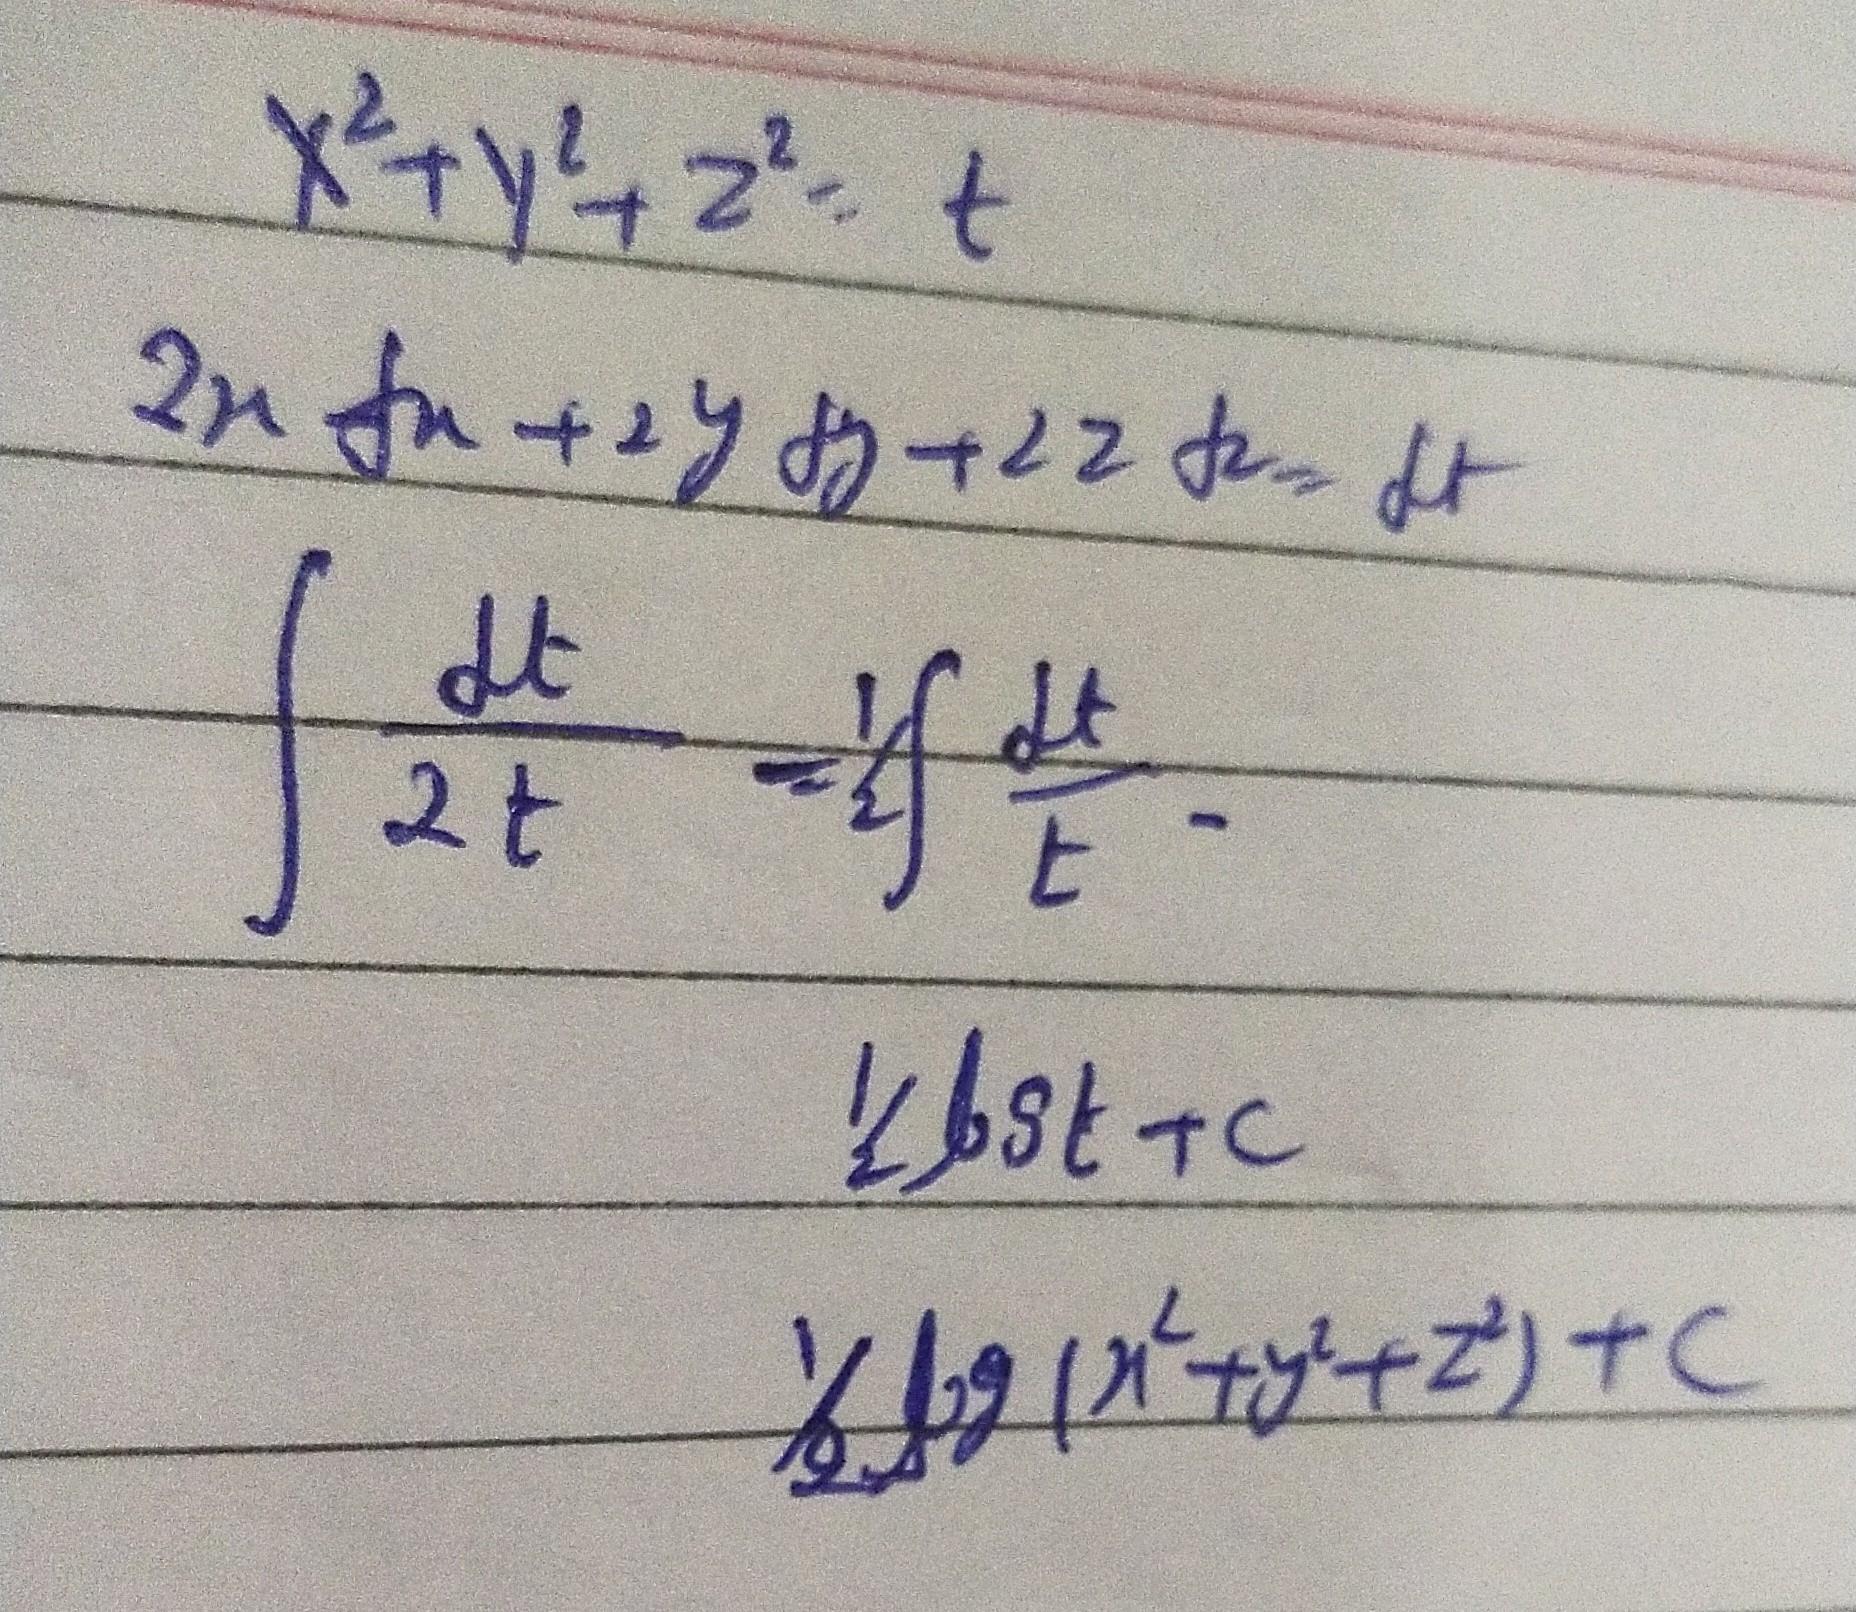 x² + y² + z² = t
2x dx + 2y dy + 2z dz = dt
∫ dt/2t = 1/2 ∫ dt/t -
1/2 log t + c
1/2 log (x² + y² + z²) + c